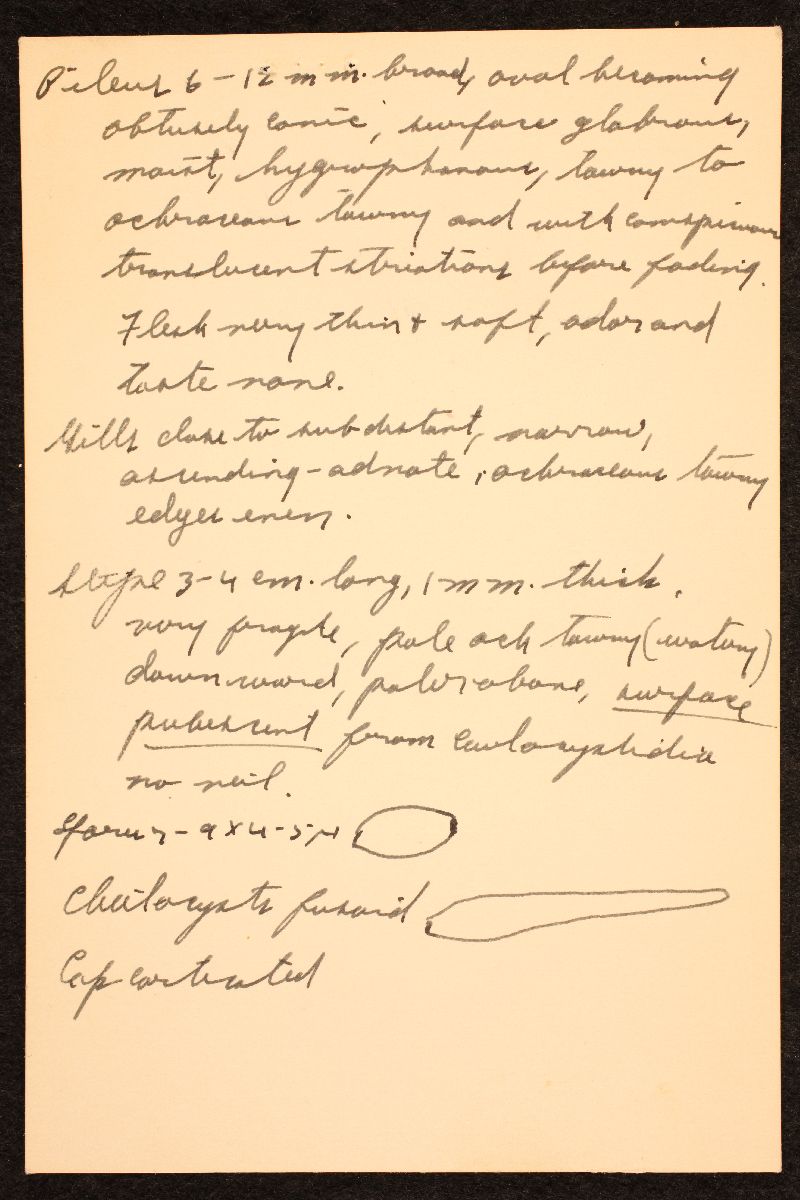 Pileus 6-12 mm. broad, oval becoming
obtusely conic, surface glabrous,
moist, hygrophanous, tawny to
ochraceous tawny and with conspicuous
translucent striations before fading.
Flesh very thin & soft, odor and
taste none.
Gills close to subdistant, narrow,
ascending-adnate, ochraceous tawny
edges even.
Stipe 3-4 cm. long, 1 mm. thick,
very fragile, pale och tawny (watery)
downward, paler above, surface
pubescent from caulocystidia
no veil.
Spores 7-9 X 4-5 µ
Cheilocysts fusoid
Cap corticated